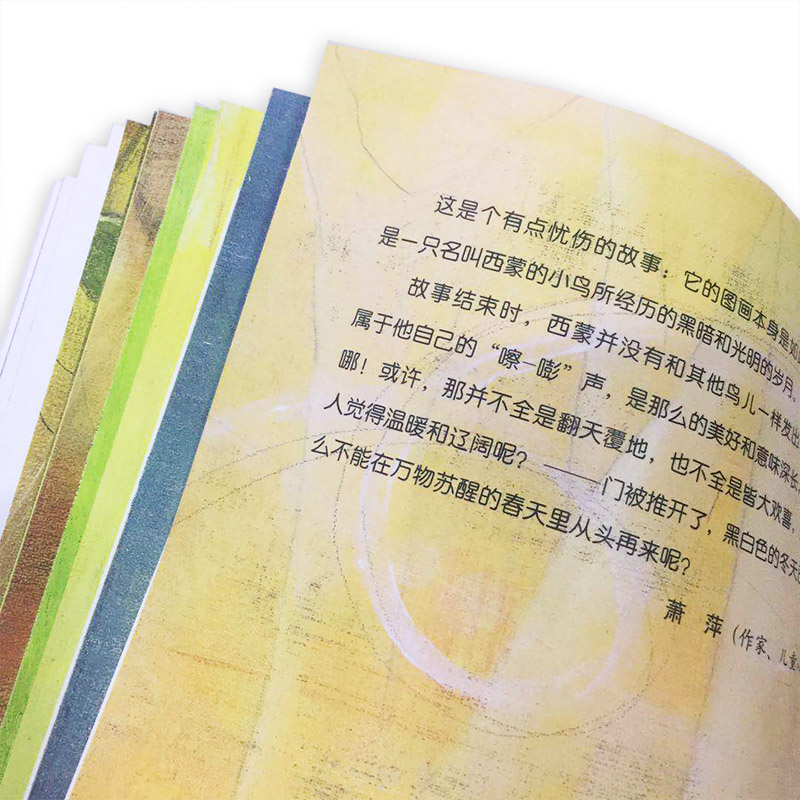 这是个有点忧伤的故事：它的图画本身是如
是一只名叫西蒙的小鸟所经历的黑暗和光明的岁月。
故事结束时，西蒙并没有和其他鸟儿一样发出
属于他自己的“嚓—嘭”声，是那么的美好和意味深长
哪！或许，那并不全是翻天覆地，也不全是皆大欢喜，
人觉得温暖和辽阔呢？——门被推开了，黑白色的冬天
么不能在万物苏醒的春天里从头再来呢？
萧 萍（作家、儿童